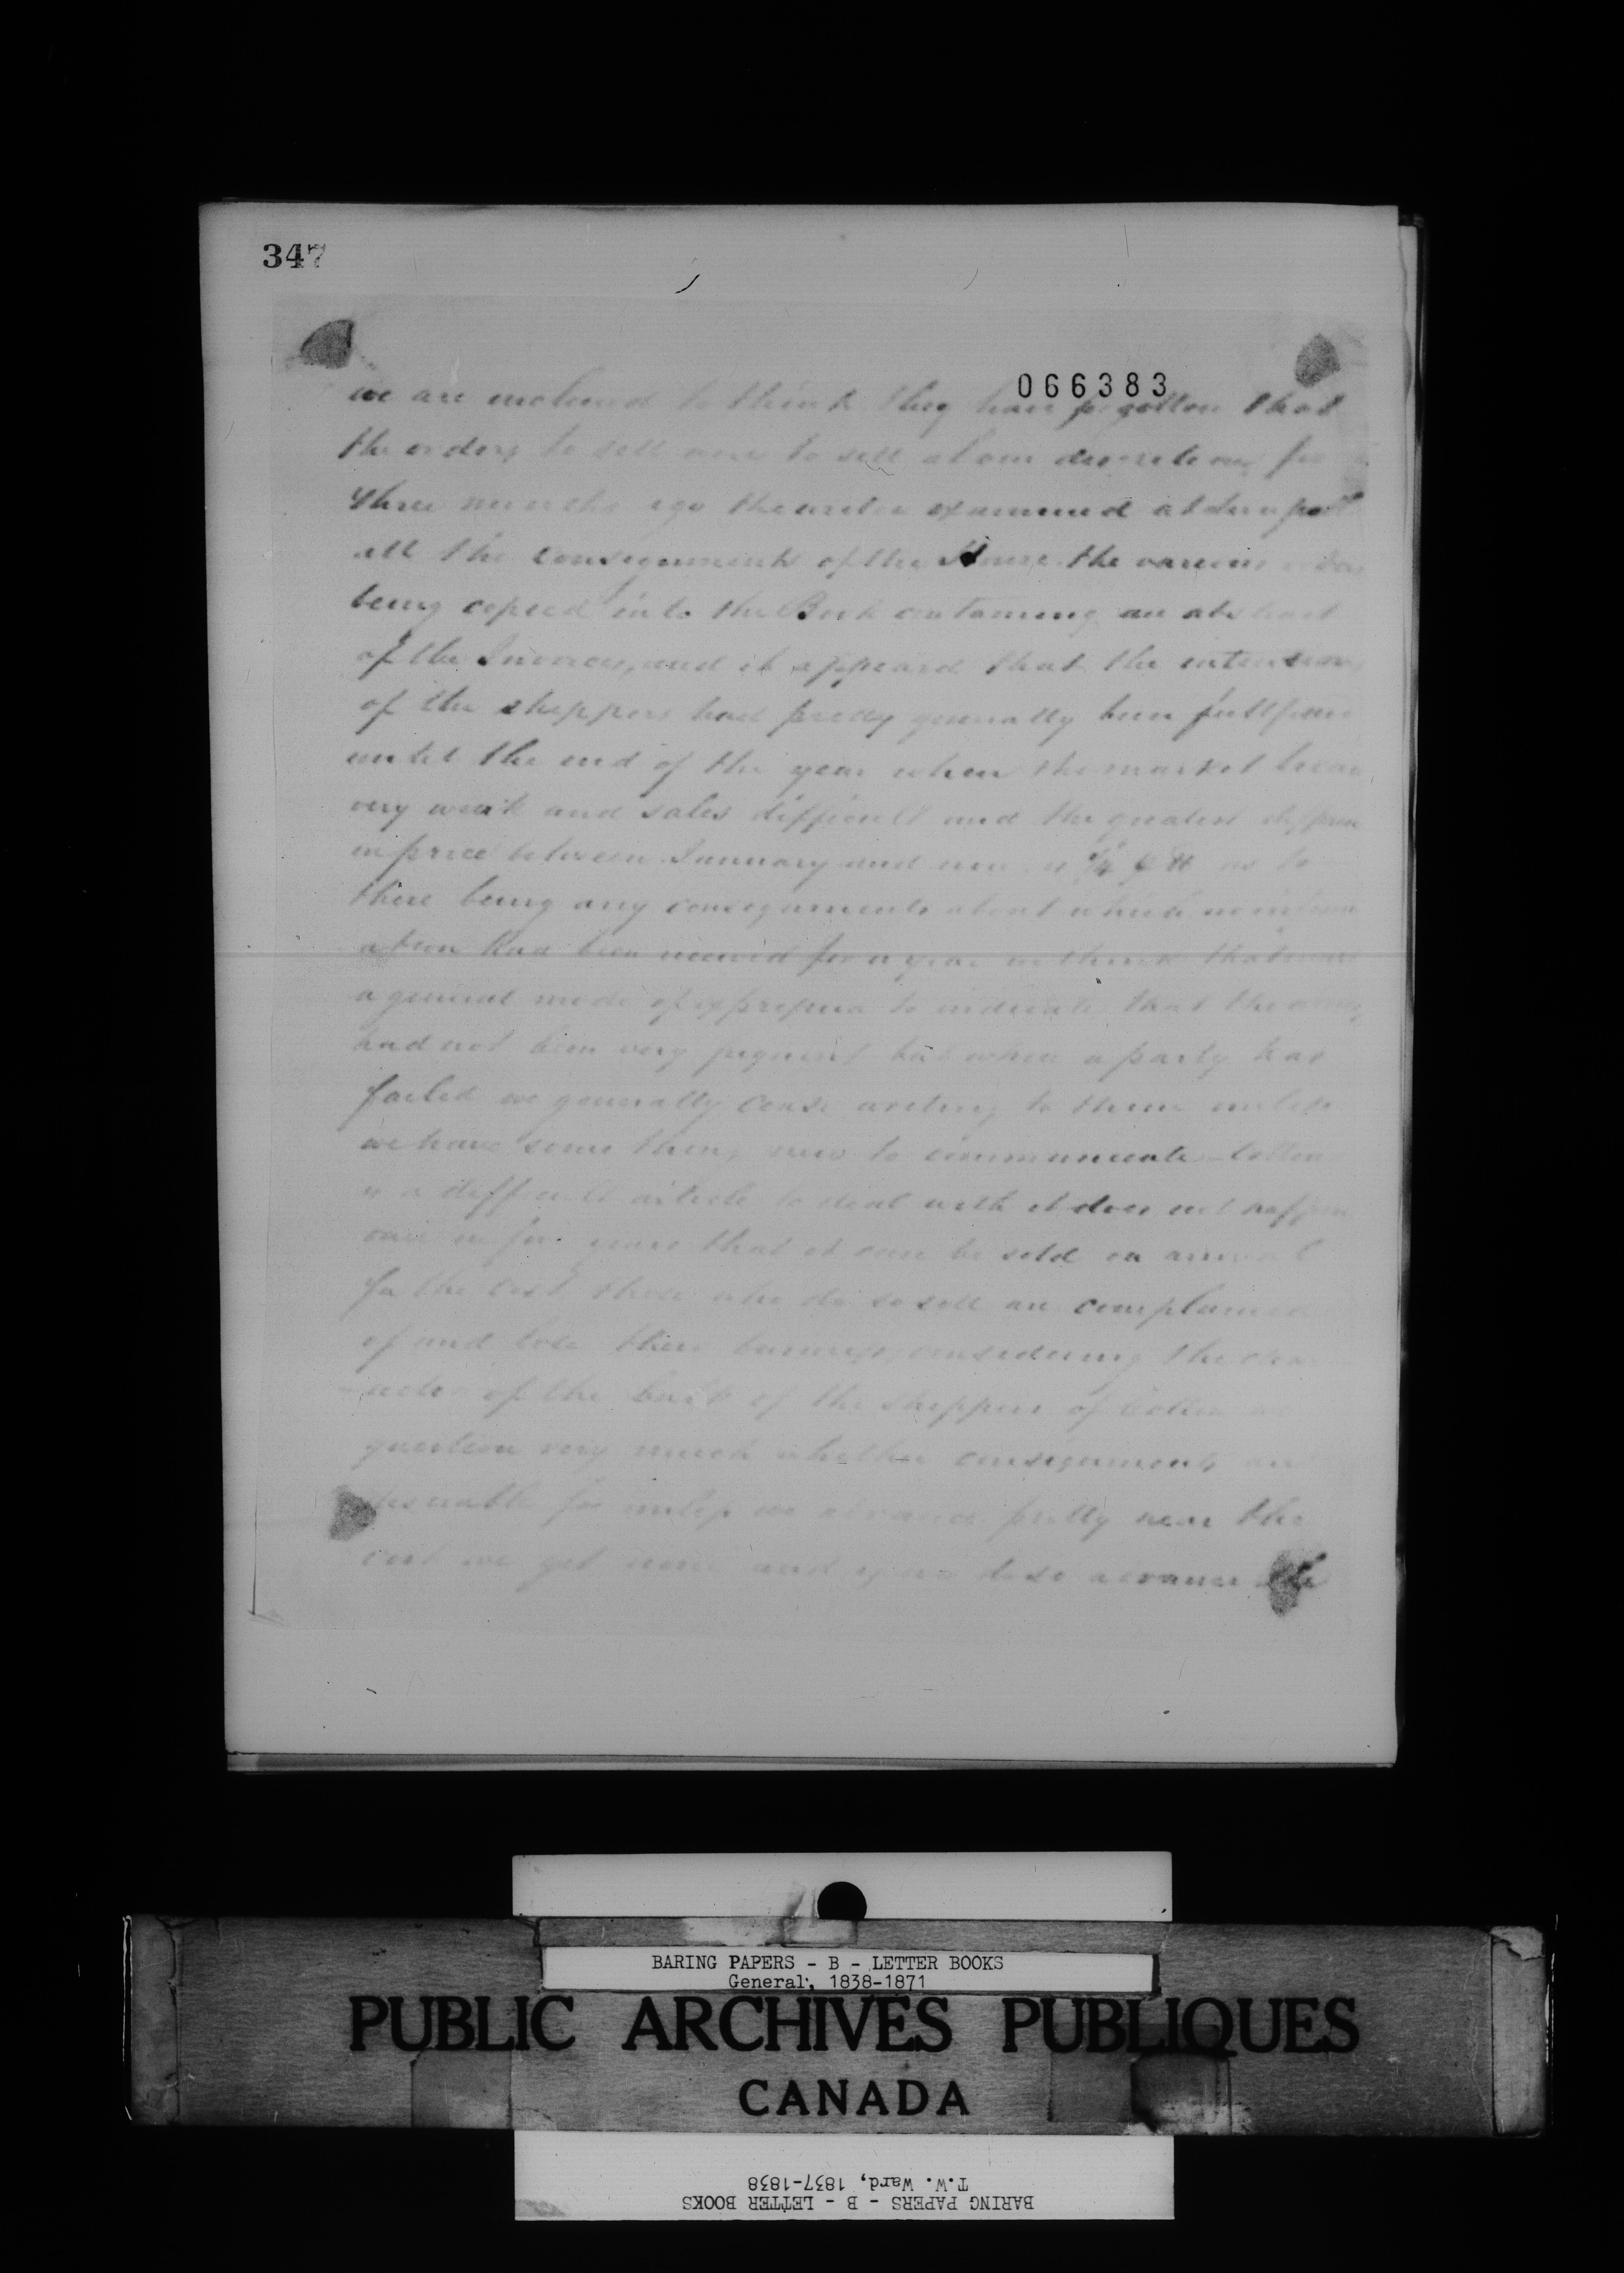 347
066383
we are inclined to think they have forgotten that
the orders to sell were to sell at our discretion, for
three months ago the writer examined at Liverpool
all the consignments of the House the various orders
being copied into the Book containing an abstract
of the Invoices, and it appeard that the intentions
of the shippers had pretty generally been
until the end of the year when the market became
very weak and sales difficult and the greatest
in price between January and now is as to
there being any consignments about which no inform
ation had been received for a year we think that
a general mode of expression to indicate that the
had not been very frequent but when a party has
failed we generally cease writing to them unless
we have some thing new to communicate – Cotton
is a difficult article to deal with it does not happen
once in four years that it can be sold on arrival
for the cost, those who do so sell are complained
of and lose their business, considering the char
-acter of the bulk of the shippers of Cotton we
question very much whether consignments are
desirable for unless we advance pretty near the
cost we get none and if we do so advance the
BARING PAPERS - B - LETTER BOOKS
General, 1838-1871
PUBLIC ARCHIVES PUBLIQUES
CANADA
BARING PAPERS - B - LETTER BOOKS
T.W. Ward, 1837-1838